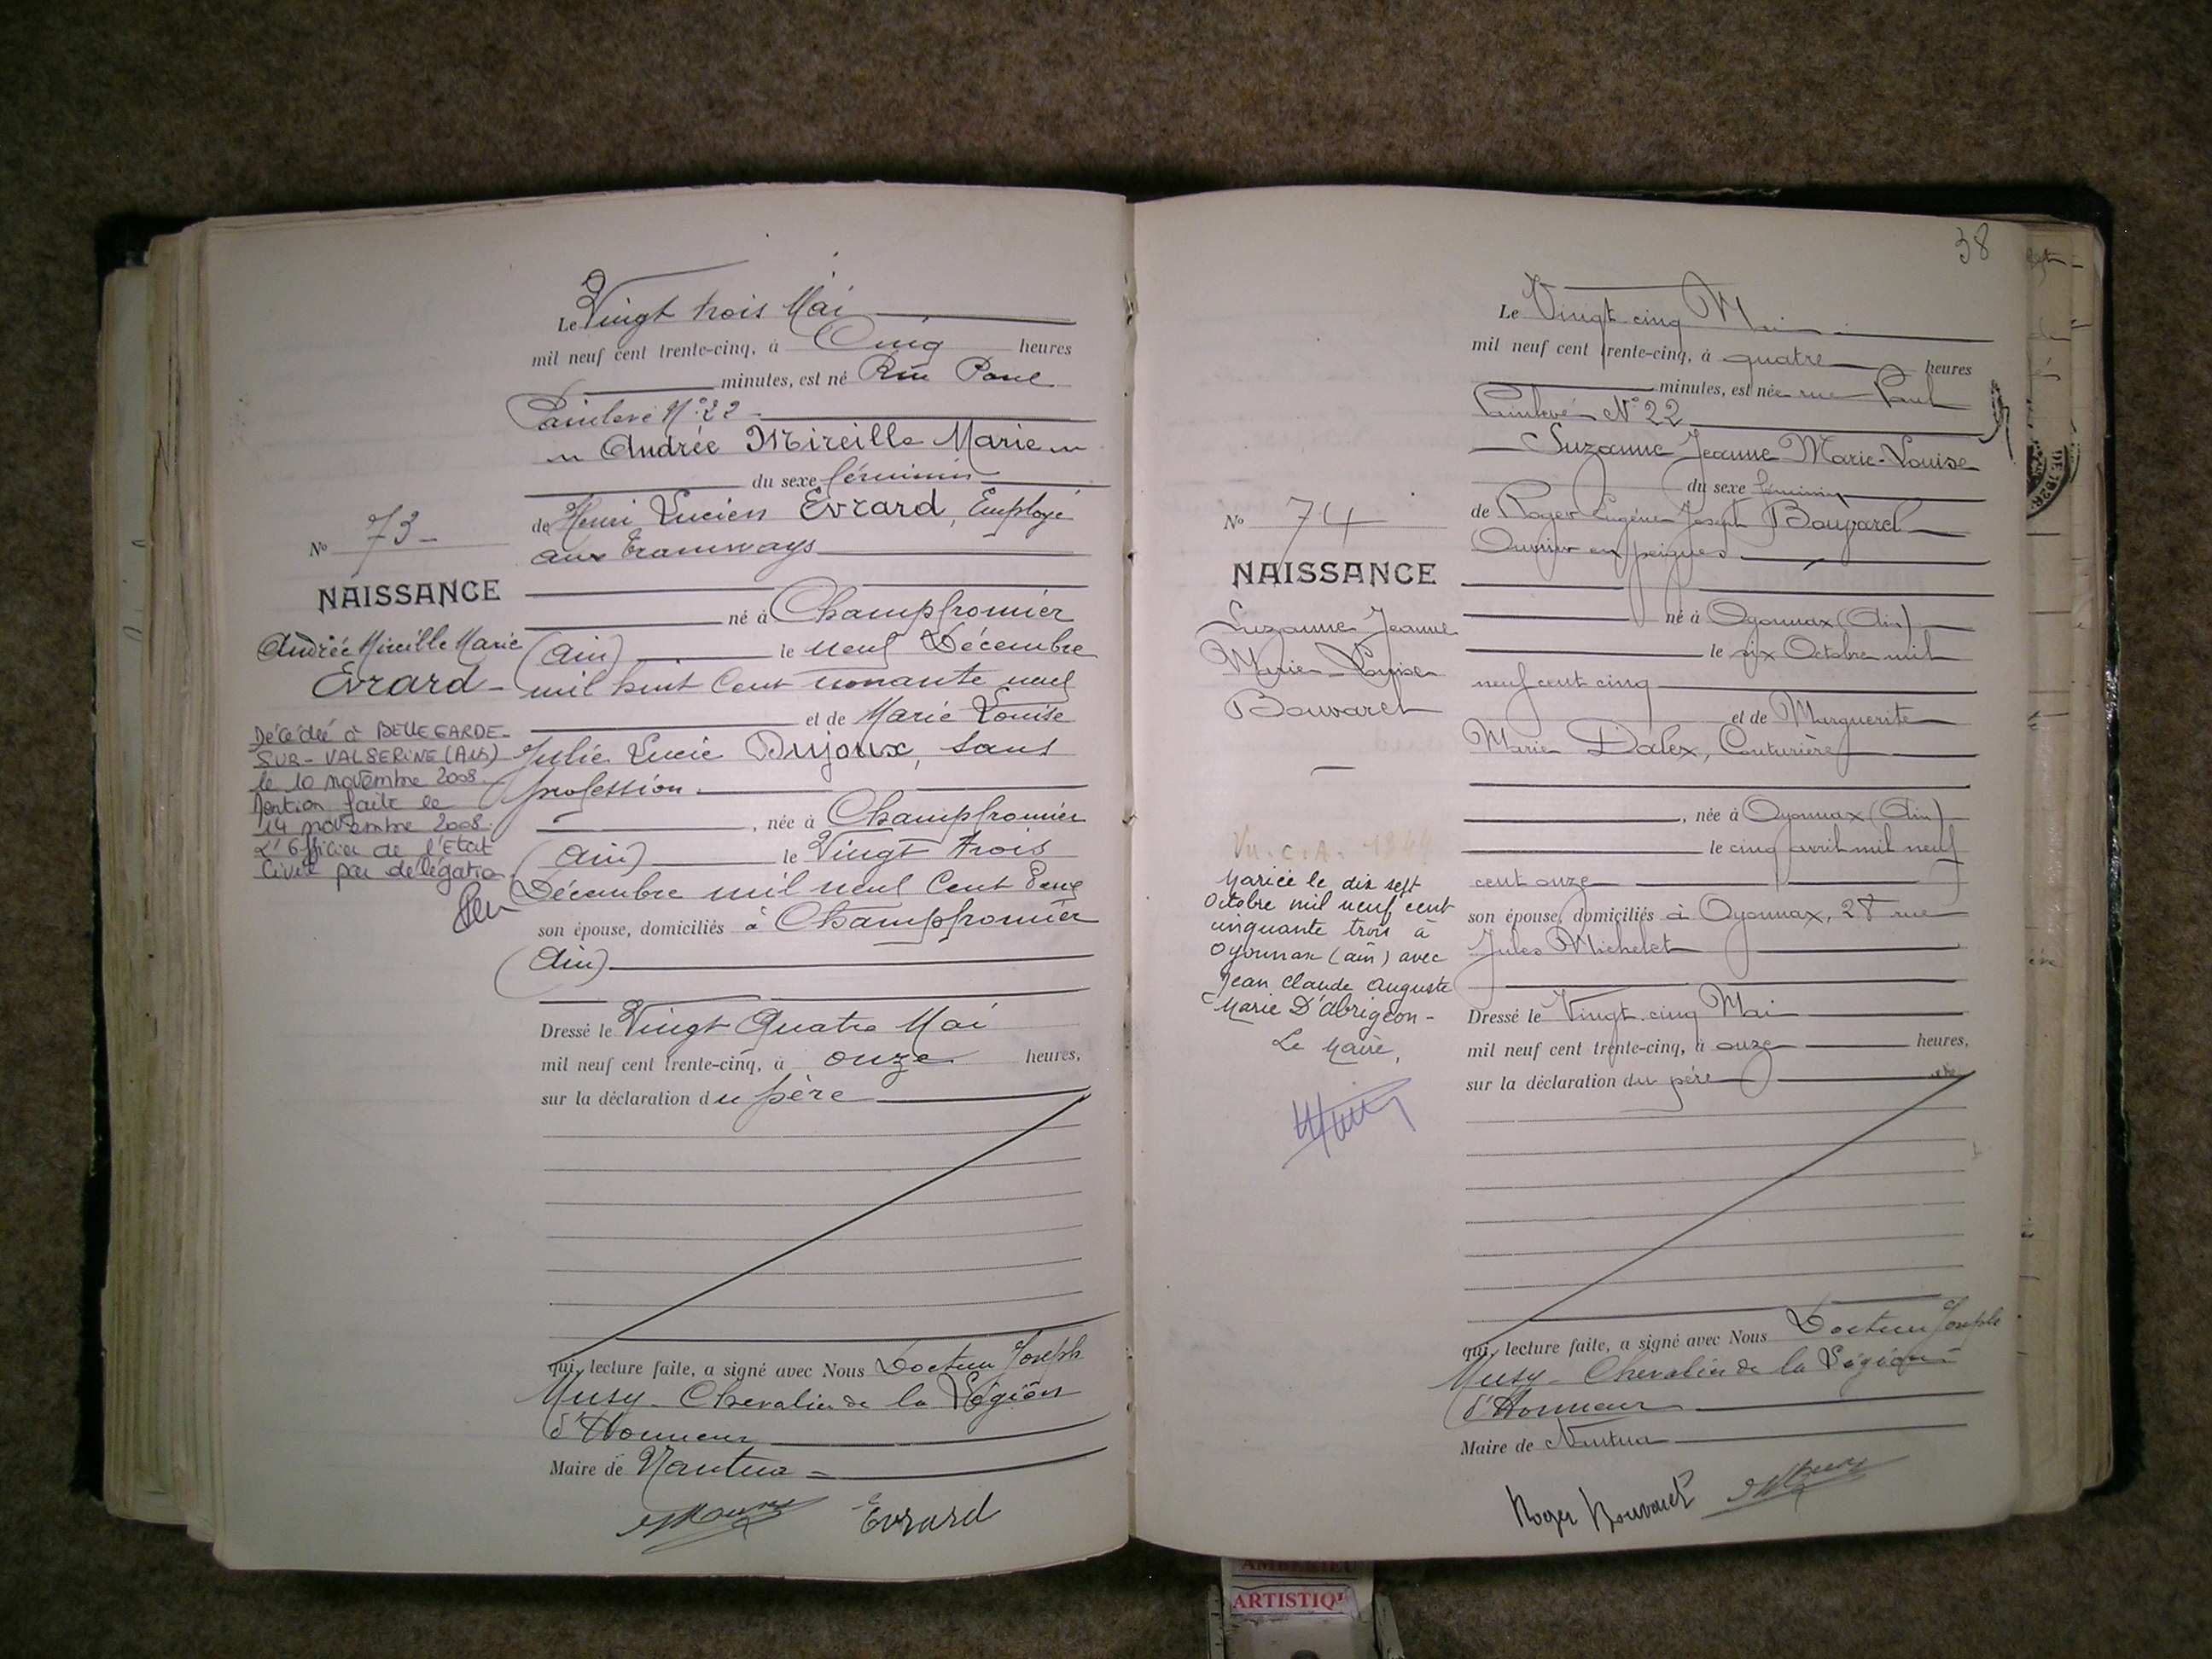 Le Vingt trois Mai
mil neuf cent trente-cinq, à Cinq heures
minutes, est né Rue Paul
Painlevé N° 22
Andrée Mireille Marie
du sexe féminin
de Henri Lucien Evrard, Employé
aux tramways
né à Champfromier
(Ain) le neuf Décembre
mil huit Cent nonante neuf
et de Marie Louise
Julie Lucie Dujoux, sans
profession
, née à Champfromier
(Ain) le Vingt Trois
Décembre mil neuf Cent
son épouse, domiciliés à Champfromier
(Ain)
Dressé le Vingt Quatre Mai
mil neuf cent trente-cinq, à onze heures,
sur la déclaration du père
qui, lecture faite, a signé avec Nous Docteur Joseph
Musy - Chevalier de la Légion
d'Honneur
Maire de Nantua
Evrard
No 73
NAISSANCE
Andrée Mireille Marie
Evrard
Décédée à BELLEGARDE-
SUR-VALSERINE (Ain)
le 10 novembre 2008
Mention faite le
14 novembre 2008.
L'Officier de l'Etat
Civil par délégation
38
Le Vingt cinq Mai
mil neuf cent trente-cinq, à quatre heures
minutes, est née rue Paul
Painlevé N° 22
Suzanne Jeanne Marie-Louise
du sexe féminin
de Roger Eugène Joseph Bouvaret
Ouvrier en peignes
né à Oyonnax (Ain)
le six Octobre mil
neuf cent cinq
et de Marguerite
Marie Dalex, Couturière
, née à Oyonnax (Ain)
le cinq avril mil neuf
cent onze
son épouse, domiciliés à Oyonnax, 28 rue
Jules Michelet
Dressé le Vingt cinq Mai
mil neuf cent trente-cinq, à onze heures,
sur la déclaration du père
qui, lecture faite, a signé avec Nous Docteur Joseph
Musy - Chevalier de la Légion
d'Honneur
Maire de Nantua
Roger Bouvaret
No 74
NAISSANCE
Suzanne Jeanne
Marie-Louise
Bouvaret
Vu. C. A.
Mariée le dix sept
Octobre mil neuf cent
cinquante trois à
Oyonnax (ain) avec
Jean Claude Auguste
Marie D'Abrigeon -
Le Maire,
ARTISTIQ